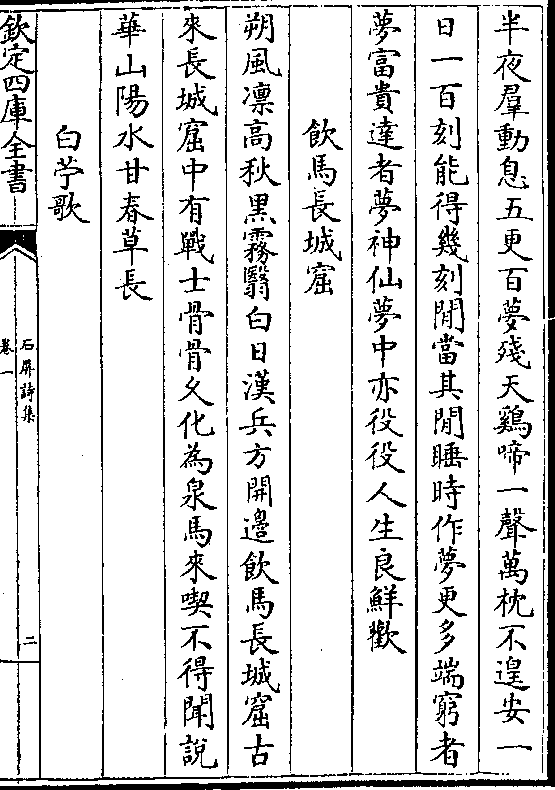 半夜羣動息五更百夢殘天鷄啼一聲萬枕不遑安一
日一百刻能得幾刻閒當其閒睡時作夢更多端窮者
夢富貴達者夢神仙夢中亦役役人生良鮮歡
飲馬長城窟
朔風凛高秋黒霧翳白日漢兵方開邉飲馬長城窟古
來長城窟中有戰士骨骨久化為泉馬來喫不得聞說
華山陽水甘春草長
白苧歌
欽定四庫全書
石屏詩集
卷一
二